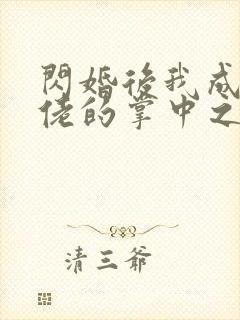 閃婚後我成
佬的掌中之
清三爺